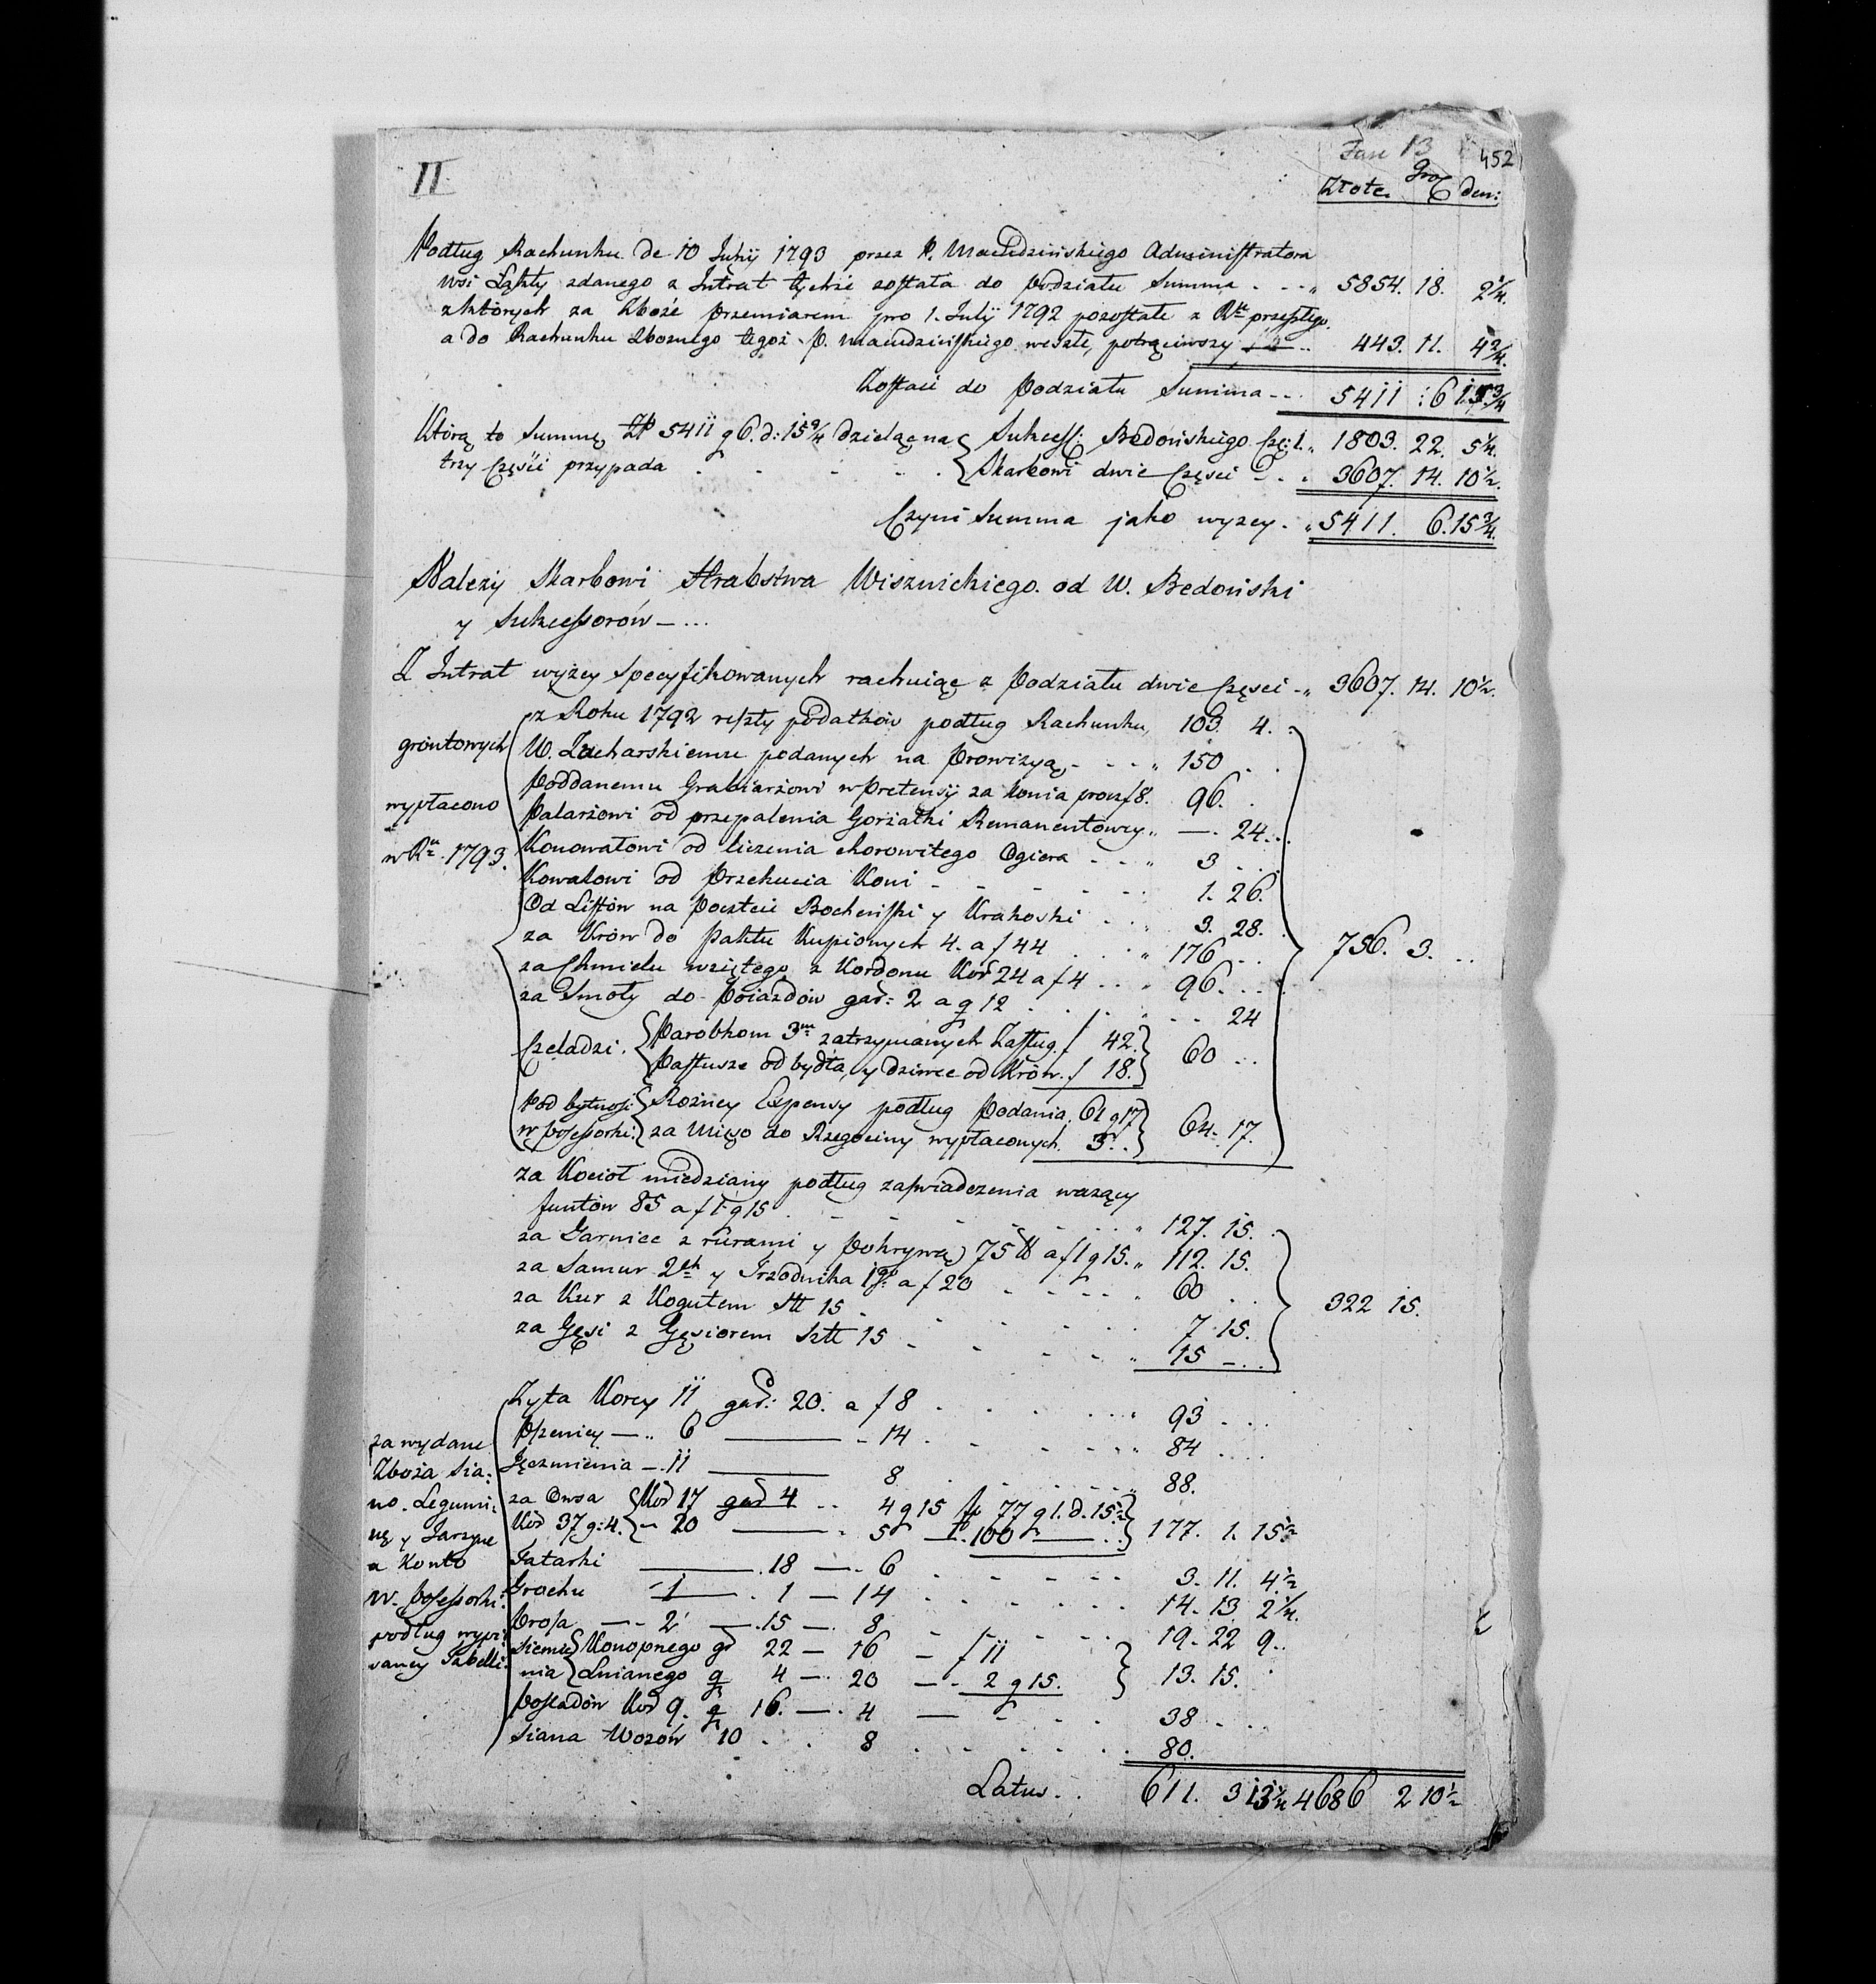 II
Fasc 13
452
Złote. Gro den:
Podług Rachunku de 10 Julij 1793 przez P. Maiudzińskiego Administratora
wsi Łąkty zdanego z Intrat tychże została do Podziału Summa . . . 5854. 18. 2 1/4.
z których za Zboże przemiarem pro 1. Julij 1792 pozostałe z Rku przeszłego
a do Rachunku Zbożnego tegoż P. Maiudzińskiego weszłe, potrąciwszy . . 443. 11. 4 2/4.
Zostaie do Podziału Summa - . . 5411 : 6 15 3/4
Którą to Summę Złp 5411 g 6. d: 15 3/4 dzieląc na Sukcess: Bedońskiego Czę: 1. 1803. 22. 5 1/4.
trzy Części przypada . - - - . Skarbowi dwie Części - . . 3607. 14. 10 1/2.
Czyni Summa jako wyzey . 5411. 6. 15 3/4.
Należy Skarbowi Hrabstwa Wisznickiego. od W. Bedoński
y Sukcessorów - . . .
Z Intrat wyżey specyfikowanych rachuiąc z Podziału dwie Części - 3607. 14. 10 1/2.
gróntowych
wypłacono
w Rku 1793.
z Roku 1792 reszty podatków podług Rachunku, 103 4. .
W. Zacharskiemu podanych na Prowizyą - - - 150 . .
Poddanemu Grabiarżowi w Pretensij za konia 96. .
Palarżowi od przepalenia Gorżałki Remanentowey - . 24 . .
Konowałowi od liczenia chorowitego Ogiera - - 3 . . .
Kowalowi od Przekucia Koni - - - - - 1. 26.
Od Listów na Poczcie Bocheńskiey y Krakoski . . 3. 28.
za Krów do Paktu Kupionych 4. a f 44 . . 176 . .
za Chmielu wziętego z Kordonu Kor 24 a f 4 . . 96. . . .
za Smoły do Poiazdów gar: 2 a g 12 . . . - . . 24
756. 3. . .
Czeladzi. Parobkom 3m zatrzymanych Zasług. f 42.
Pastusze od bydła, y dziewce od Krów. f 18. 60 . . .
Pod bytność Rożney Expensy podług Podania. 61 g 17
w Possessorki: za Mięso do Rzegociny wypłaconych. 3. . 64. 17.
za Kocioł miedziany podług zaświadczenia ważący
funtów 85 a f 1 g 15 . - - - - . . 127. 15. .
za Garniec z rurami y Pokrywą 75 ℔ a f 1 g 15. 112. 15.
za Samur 2ch y Trzodnika 1go a f 20 . . . 60 . .
za Kur z Kogutem Szt 15 . - - - . . 7 15.
za Gęsi z Gęsiorem Szt 15 - . . - - 15 - . .
322 15.
za wydane
Zboża Sia:
no. Legumi:
nę y Jarzyne
a Konto
W. Possessorki:
podług wypi:
saney Tabelli:
Żyta Korcy 11 gar: 20. a f 8 . . . . 93 . . .
Pszenicy - 6 - 14 . . - - 84 . . .
Jęczmienia - 11 8 . . . 88.
za Owsa Kor 17 gar 4 . . 4 g 15 fl 77 g 1. d. 15 1/2
Kor 37 g: 4. - 20 - . 5 - f. 100 - . . 177. 1. 15 1/2
Tatarki . 18 - . 6 . - - - . . 3. 11. 4 1/2
Grochu 1 - . 1 - 14 . . . . 14. 13. 2 1/4.
Prosa - - 2 - 15 - . 8 . - - - . 19. 22 9. .
Siemie Konopnego g 22 - 16 - f 11
nia Lnianego g 4 - . 20 - - 2 g 15. 13. 15.
Pośladów Kor 9. g 16. - . 4 - - - . . 38 . . .
Siana Wozów 10 . . 8 . - . . . 80.
Latus . . 611. 3 13 1/4 4686 2 10 1/2